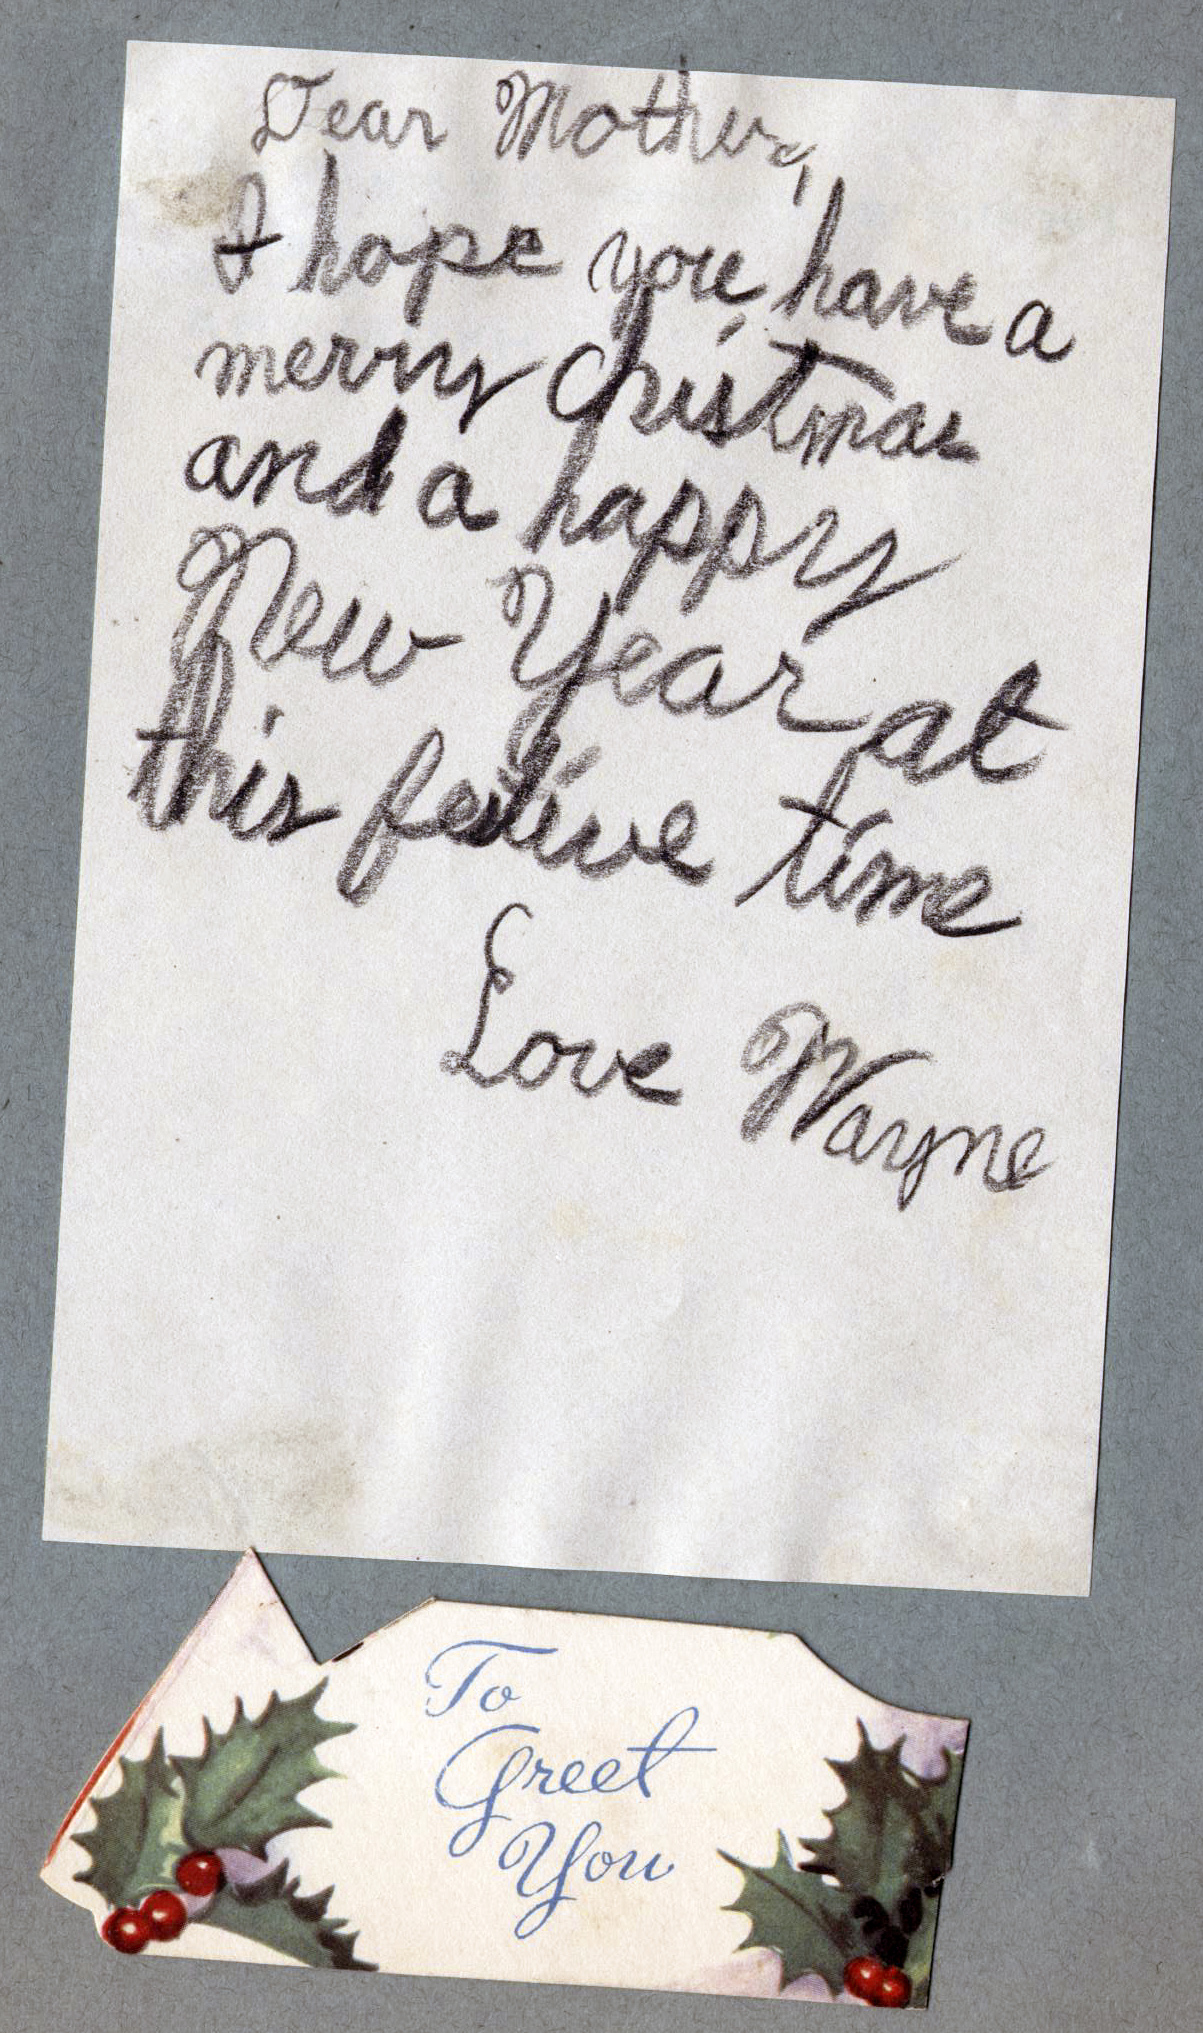 Dear Mother,
I hope you have a
merry christmas
and a happy
New Year at
this festive time
Love Wayne
To
Greet
You